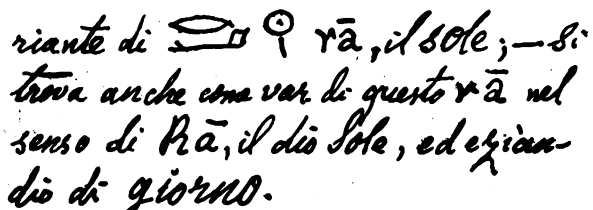 riante di 𓂋𓂝 𓇳𓏤 rā, il sole; — si
trova anche come var. di questo rā nel
senso di Rā, il dio Sole, ed ezian-
dio di giorno.